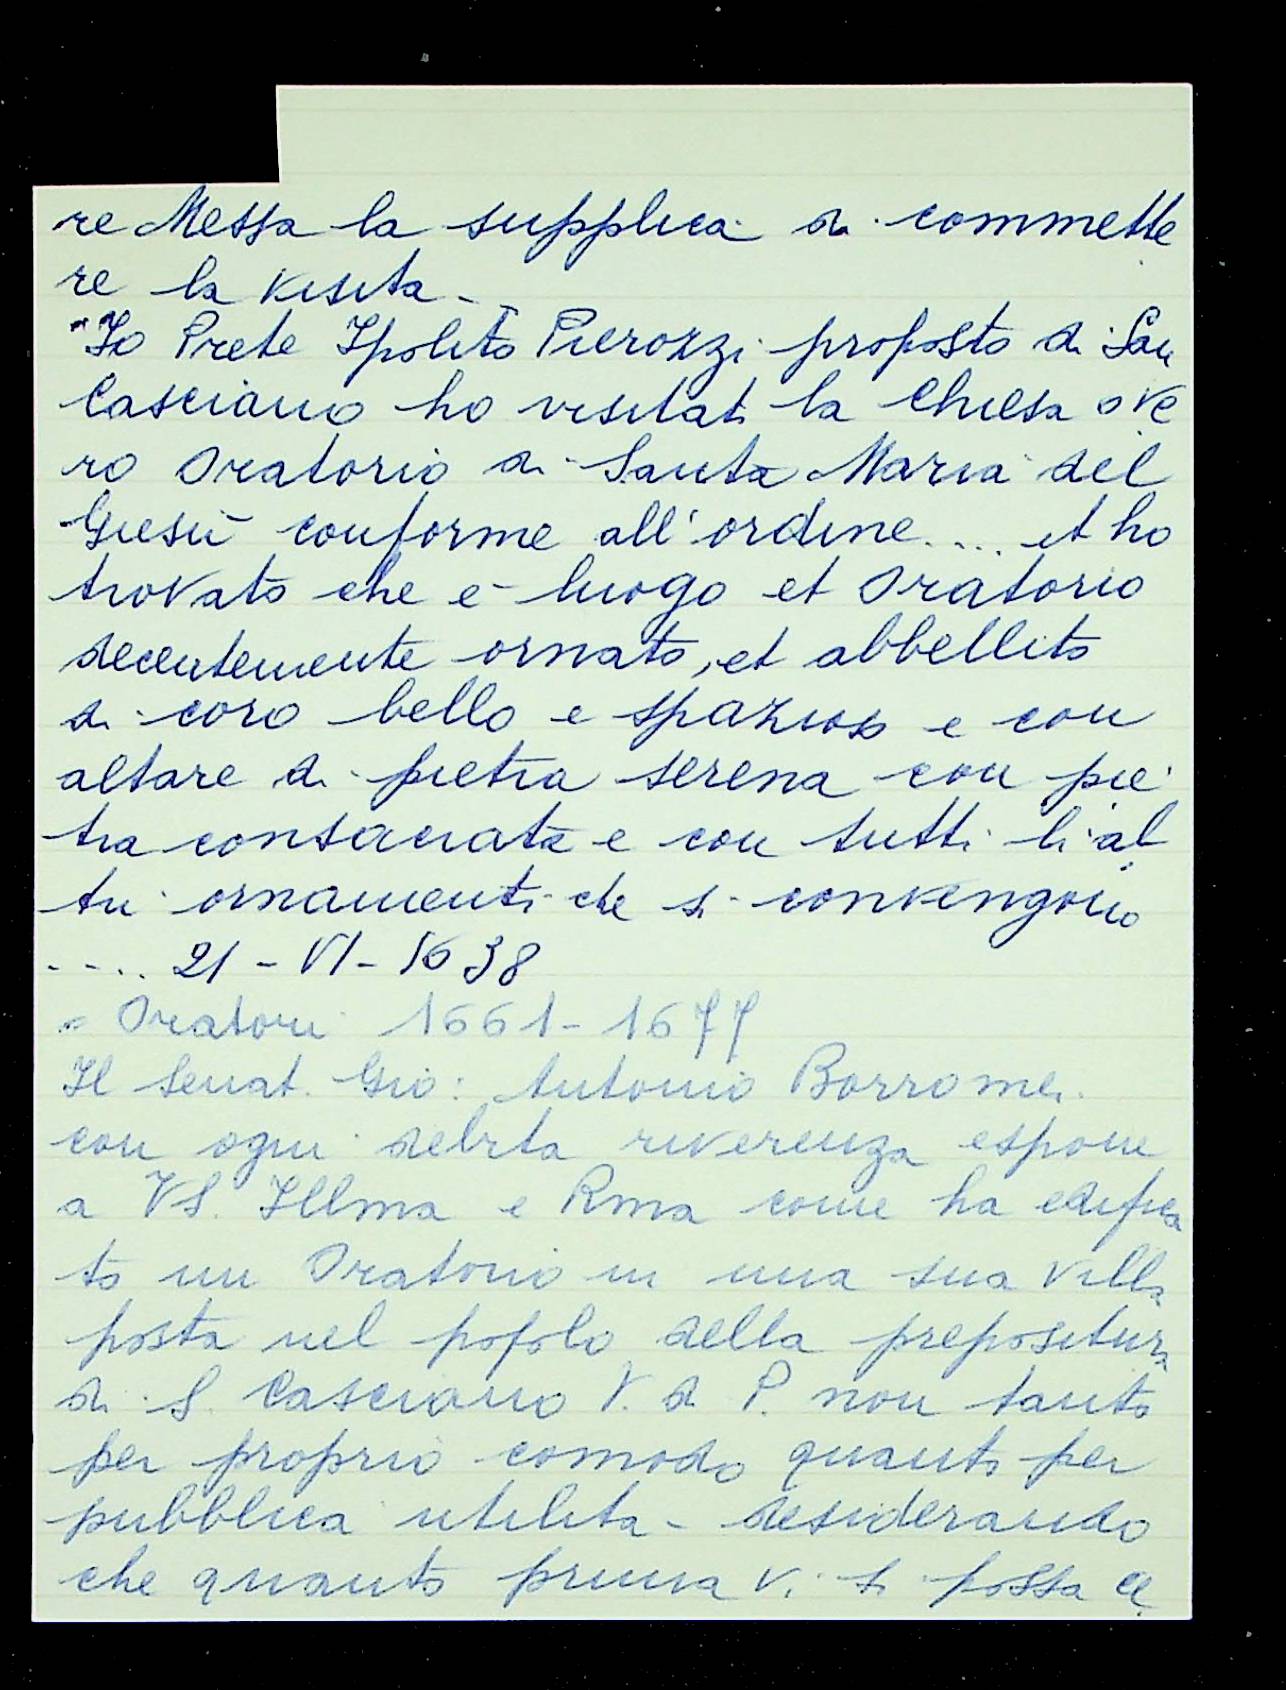 re Messa la supplica di commette
re la visita -
"Io Prete Ipolito Pierozzi proposto di San
Casciano ho visitati la Chiesa ove
ro Oratorio di Santa Maria del
Giesù conforme all'ordine .... et ho
trovato che è luogo et Oratorio
decentemente ornato, et abbellito
di coro bello e spazioso e con
altare di pietra serena con pie
tra consacrata e con tutti li al
tri ornamenti che si convengono
.... 21 - VI - 1638
= Oratori 1661 - 1677
Il Senat. Gio: Antonio Borromei
con ogni debita riverenza espone
a VS. Illma e Rma come ha edifica
to un Oratorio in una sua Villa
posta nel popolo della prepositura
di S. Casciano V. di P. non tanto
per proprio comodo quanto per
pubblica utilità - desiderando
che quanto prima vi si possa ce